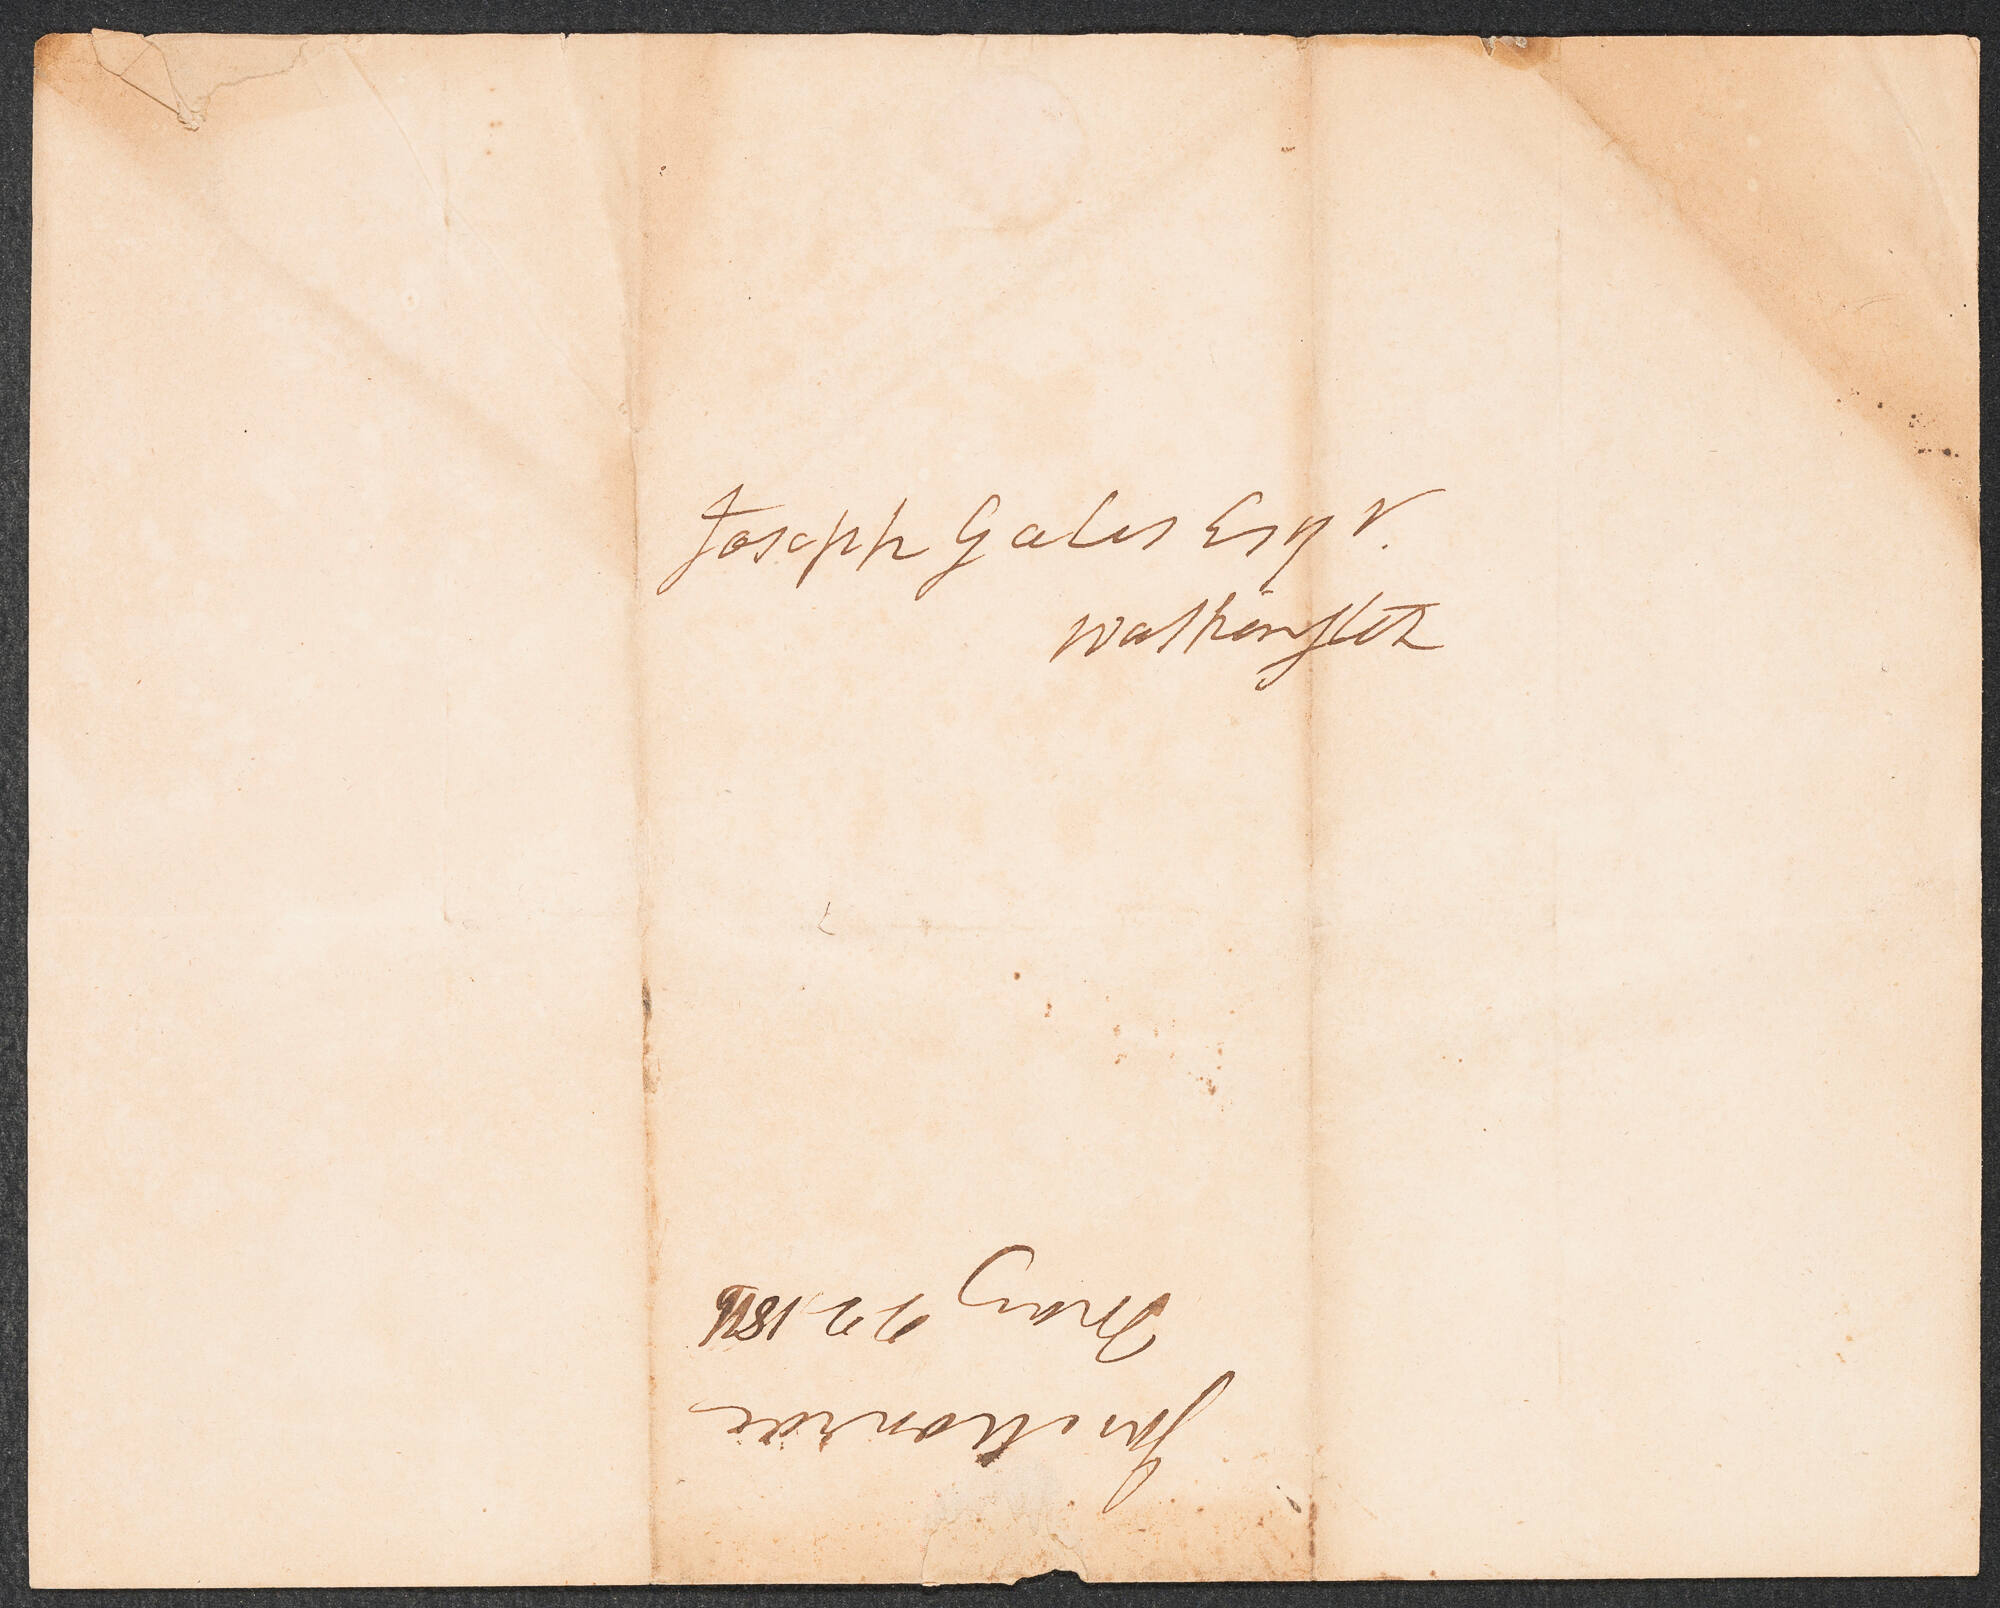 Joseph Gales Esqr.
Washington
Jas Monroe
May 22, 1816